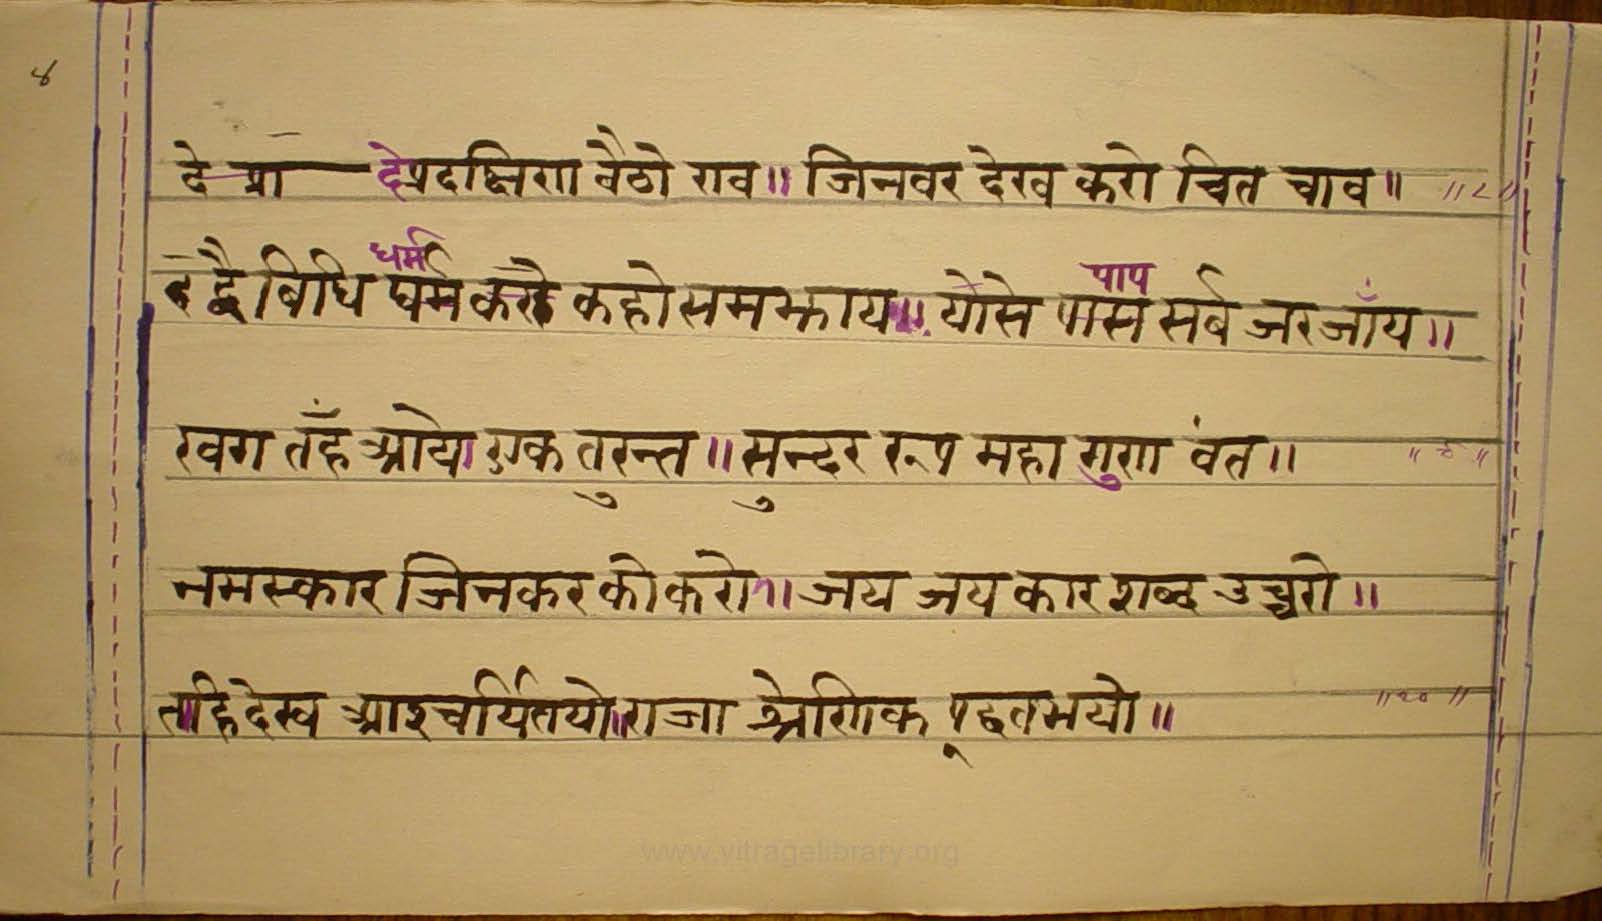 ४
दे प्रदक्षिणा बैठो राव॥ जिनवर देख करो चित चाव॥ ॥८॥
द्वै बिधि धर्म कहो समझाय॥ यौसे पाप सर्व जर जाँय॥
खग तँह आयो एक तुरन्त॥ सुन्दर रूप महा गुण वंत॥ ॥९॥
नमस्कार जिनकर को करो॥ जय जय कार शब्द उच्चरो॥
ताहि देख आश्चर्यितयो॥ राजा श्रेणिक पूछत भयो॥ ॥१०॥
www.vitragelibrary.org